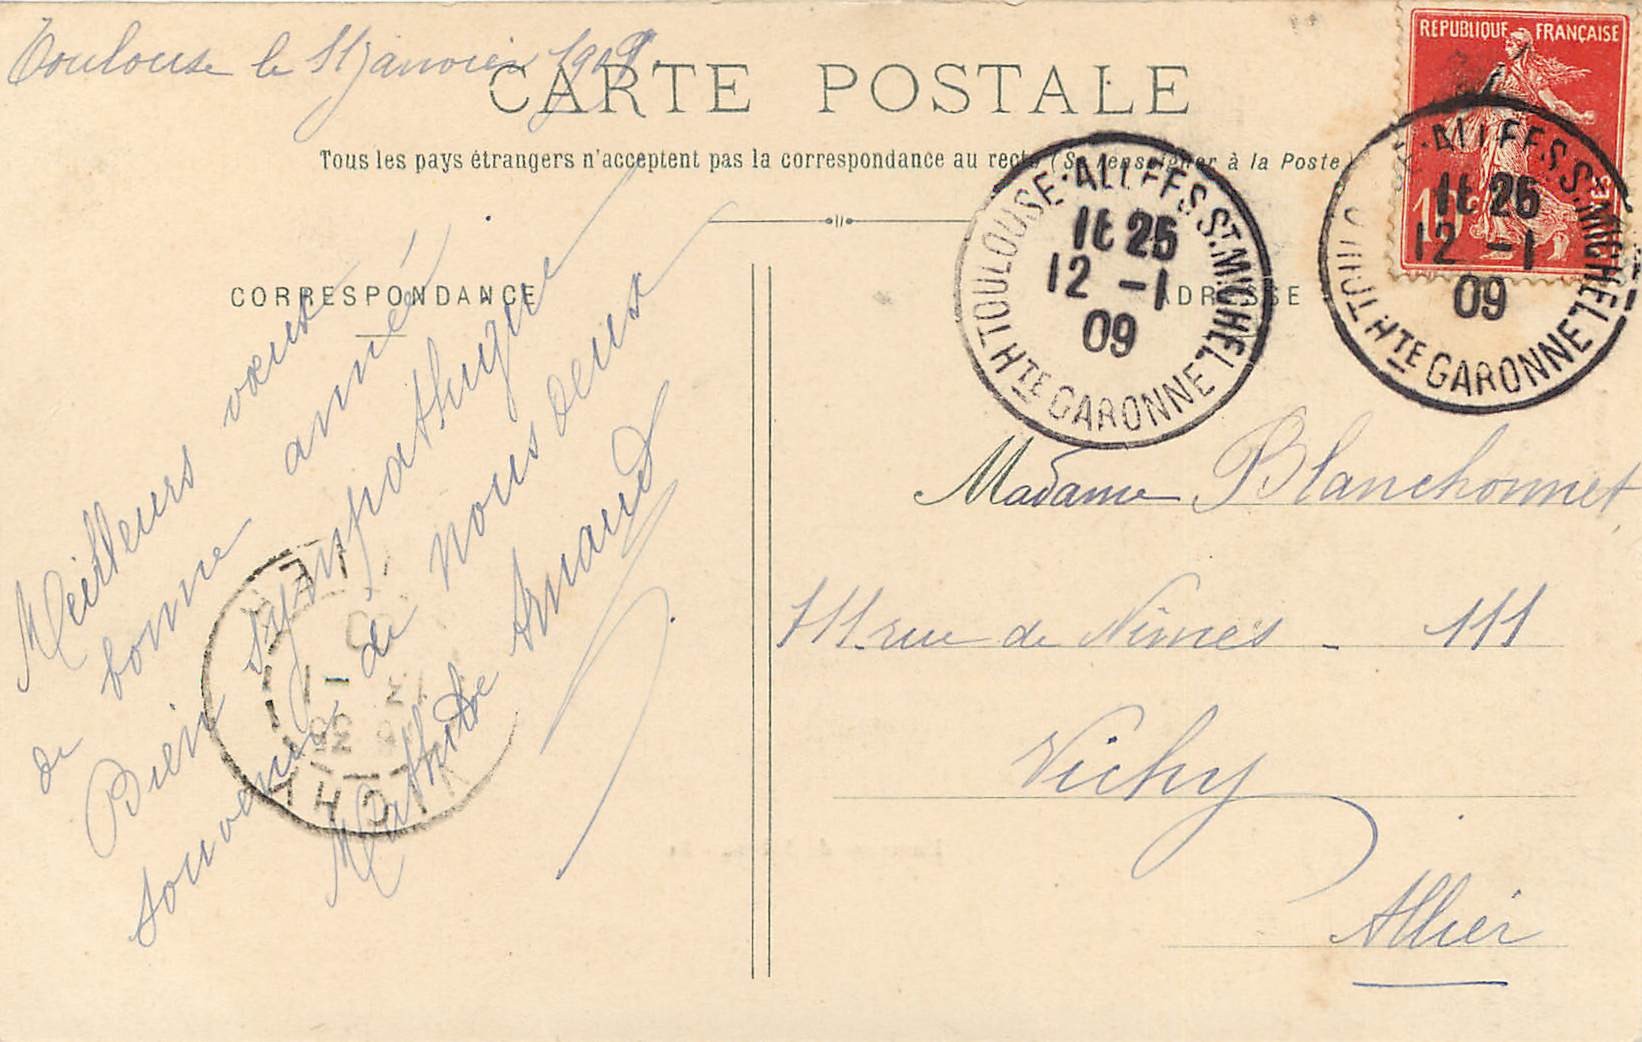 Toulouse le 11 janvier 1909
CARTE POSTALE
Tous les pays étrangers n'acceptent pas la correspondance au recto (Se renseigner à la Poste)
CORRESPONDANCE
ADRESSE
REPUBLIQUE FRANÇAISE
10
TOULOUSE·ALLÉES ST MICHEL
1t 25
12 -1
09
HTE GARONNE
TOULOUSE·ALLÉES ST MICHEL
1t 25
12 -1
09
HTE GARONNE
Meilleurs vœux
de bonne année
Bien sympathique
souvenir de nous deux
Mathilde Arnaud
VICHY
ALLIER
Madame Blanchonnet
111 rue de Nimes - 111
Vichy
Allier